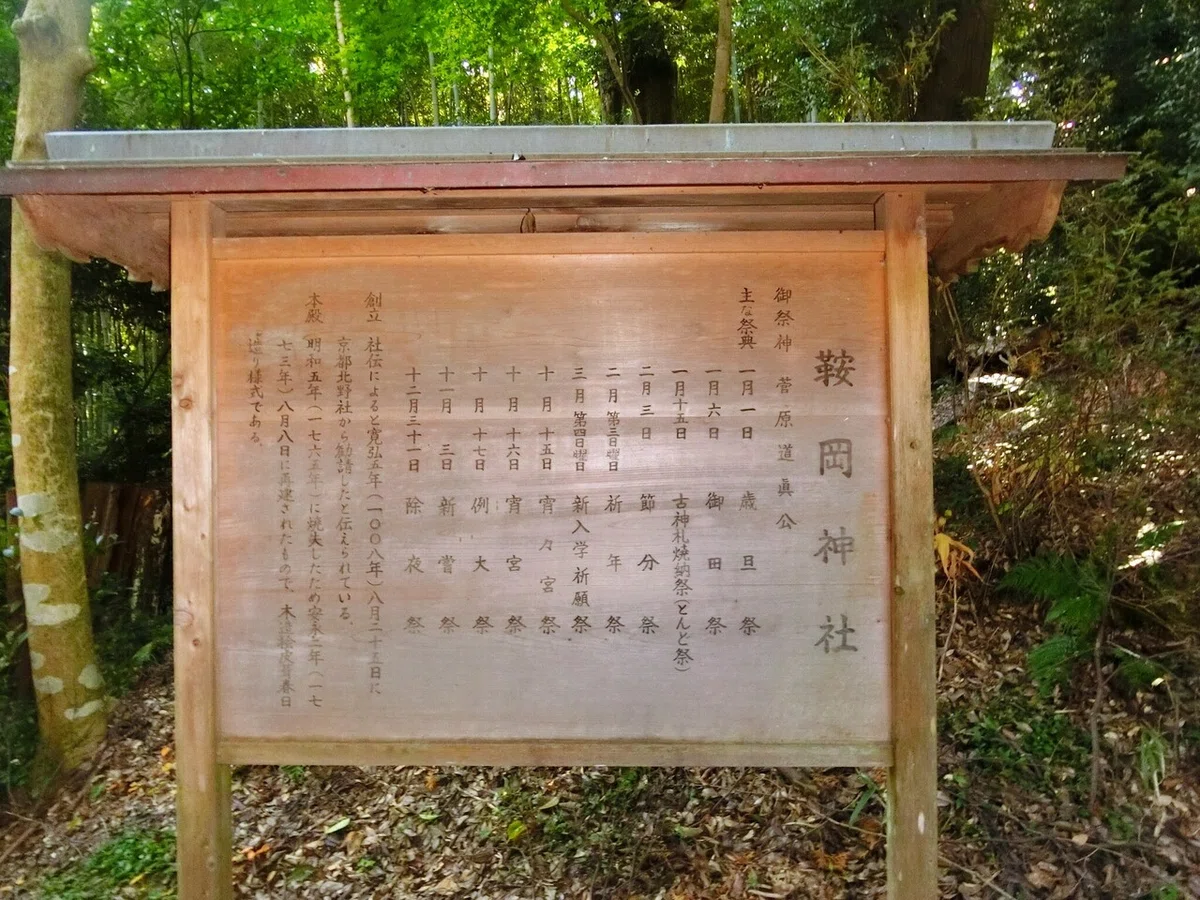 鞍岡神社
御祭神 菅原道眞公
主な祭典 一月一日 歳旦祭
一月六日 御田祭
一月十五日 古神札焼納祭(とんと祭)
二月三日 節分祭
二月第三日曜日 祈年祭
三月第四日曜日 新入学祈願祭
十月十五日 宵々宮祭
十月十六日 宵宮祭
十月十七日 例大祭
十一月三日 新嘗祭
十二月三十一日 除夜祭
創立 社伝によると寛弘五年(一〇〇八年)八月二十五日に
京都北野社から勧請したと伝えられている。
本殿 明和五年(一七六五年)に焼失したため安永二年(一七
七三年)八月八日に再建されたもので、木造桧皮葺春日
造り様式である。